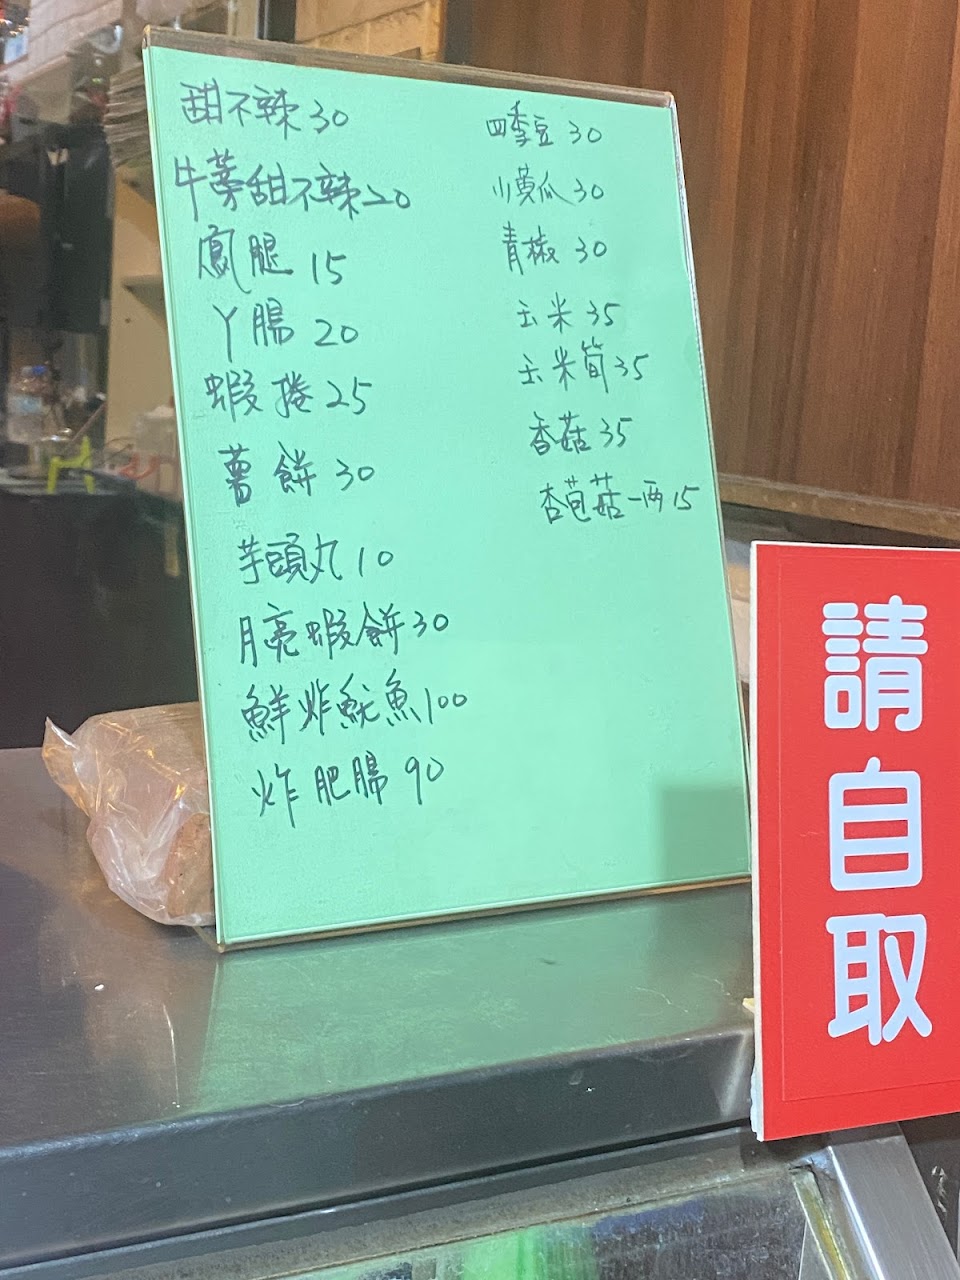 甜不辣 30
牛蒡甜不辣 20
鳳腿 15
丫腸 20
蝦捲 25
薯餅 30
芋頭丸 10
月亮蝦餅 30
鮮炸魷魚 100
炸肥腸 90
四季豆 30
小黃瓜 30
青椒 30
玉米 35
玉米筍 35
香菇 35
杏苞菇一兩 15
請自取